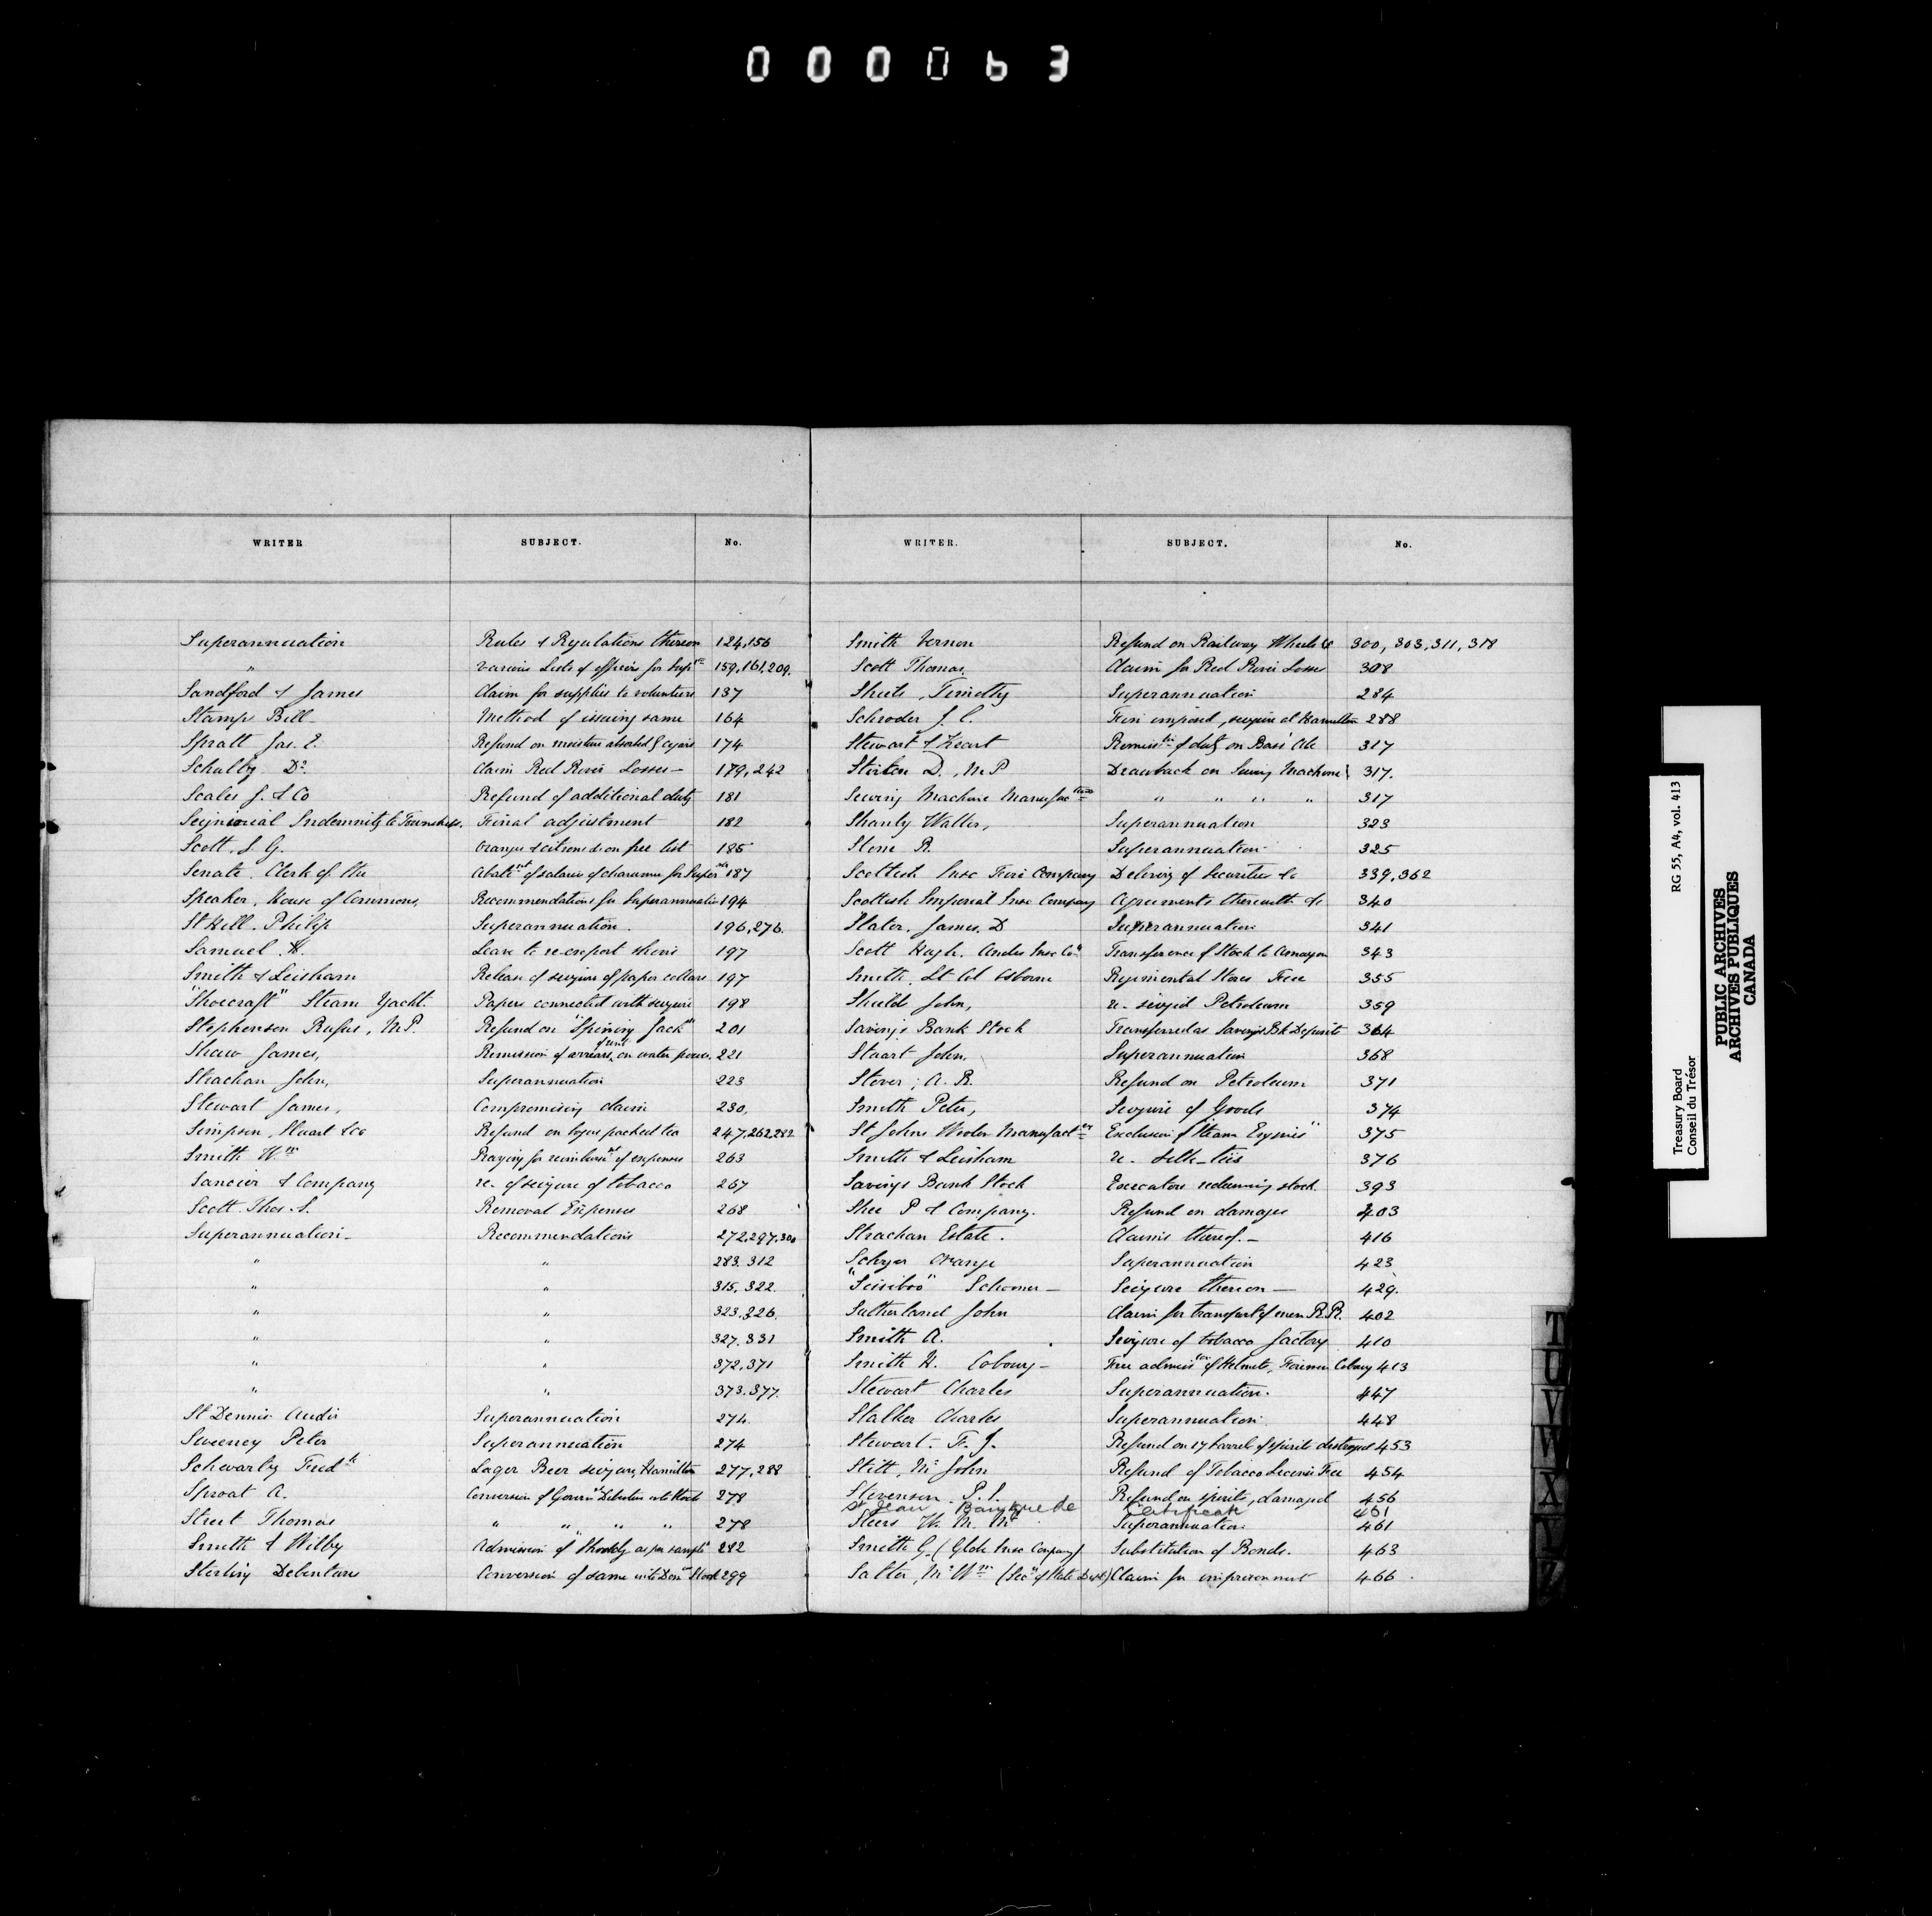 000063
WRITER SUBJECT. No.
Superannuation Rules & Regulations thereon 124,156
" various Lists of officers for Supn 159,161,209.
Sandford & James Claim for supplies to volunteers 137
Stamp Bill Method of issuing same 164
Spratt Jas. E. Refund on moisture absorbed by cigars 174
Schultz Dr. Claim Red River Losses — 179,242
Scales J. & Co Refund of additional duty 181
Seigniorial Indemnity to Townships. Final adjustment 182
Scott. S. G. Oranges & citrons &c on free list 185
Senate. Clerk of the Abatent of salaries of charwomen for Super 187
Speaker, House of Commons, Recommendations for Superannuation 194
St Hill. Philip Superannuation. 196,276.
Samuel. Leave to re-export 197
Smith & Leisham Release of seizure of paper collars 197
"Shoecraft" Steam Yacht. Papers connected with seizure 198
Stephenson Rufus, M.P. Refund on "Spinning Jack" 201
Shaw James, Remission of arrears of rent on water power. 221
Strachan John, Superannuation 223
Stewart James, Compromising claim 230,
Simpson, Stuart & Co Refund on packed tea 247,262,282
Smith Wm Praying for reimburst of expenses 263
& Company re- of seizure of tobacco 267
Scott. Thos. S. Removal Expenses 268
Superannuation — Recommendations 272,297,300
" " 283.312
" " 315.322.
" " 323.326.
" " 327.331
" " 372,371
" " 373.377.
St Dennis Superannuation 274.
Sweeney Peter Superannuation 274
Schwarby Fredk Lager Beer seizure, Hamilton 277,288
Sproat A. Conversion of Governt Debentures into Stock 278
Street Thomas " " " " 278
Smith & Wilby Admission of "Shoddy" as per sample 282
Sterling Debentures Conversion of same into Domn Stock 299
WRITER. SUBJECT. No.
Smith Vernon Refund on Railway Wheels &c 300, 303, 311, 318
Scott Thomas, Claim for Red River Losses 308
Sheets, Timothy Superannuation 284
Schroder J. C. Fine imposed, seizure at Hamilton 288
Stewart & Remissn of duty on Bass' Ale 317
Stirton D., M.P Drawback on Sewing Machines 317.
Sewing Machine Manufacturers " " " " 317
Shanly Walter, Superannuation 323
Stone R. Superannuation 325
Scottish Insce Fire Company Delivery of Securities to 339,362
Scottish Imperial Insce Company Agreements therewith &c 340
Slater. James. D Superannuation 341
Scott Hugh. Andes Insce Co. Transference of Stock to Amazon 343
Smith. Lt Col Osborne Regimental Stores Free 355
Shield John, re- seized Petroleum 359
Savings Bank Stock Transferred as Savings Bk Deposits 364
Stuart John, Superannuation 368
Stover; A. R. Refund on Petroleum 371
Smith Peter, Seizure of Goods 374
St Johns Woolen Manufactory Exclusion of "Steam Engines" 375
Smith & Leisham re- silk-ties 376
Savings Bank Stock Executors redeeming stock. 393
Shee P & Company. Refund on damages 403
Strachan Estate. Claims thereof. — 416
Schryer Orange Superannuation 423
"Sissiboo" Schooner — Seizure thereon — 429.
Sutherland John Claim for transport of men R.R. 402
Smith A. Seizure of tobacco factory 410
Smith H. Cobourg — Free admissn of Helmets, Firemen Cobourg 413
Stewart Charles Superannuation. 447
Stalker Charles Superannuation 448
Stewart. F. J. Refund on 17 barrels of spirits destroyed 453
Stitt, Mr John Refund of Tobacco License Fee 454
Stevenson. P. S. Refund on spirits, damaged 456
St Jean Banque de Certificate 461
Steers W. M. Superannuation. 461
Smith G. (Globe Insce Company) Substitution of Bonds. 463
Salter, Mr Wm (Secy of State Dept) Claim for imprisonment 466
T
U
V
W
X
Y
Z
Treasury Board RG 55, A4, vol. 413
Conseil du Trésor
PUBLIC ARCHIVES
ARCHIVES PUBLIQUES
CANADA